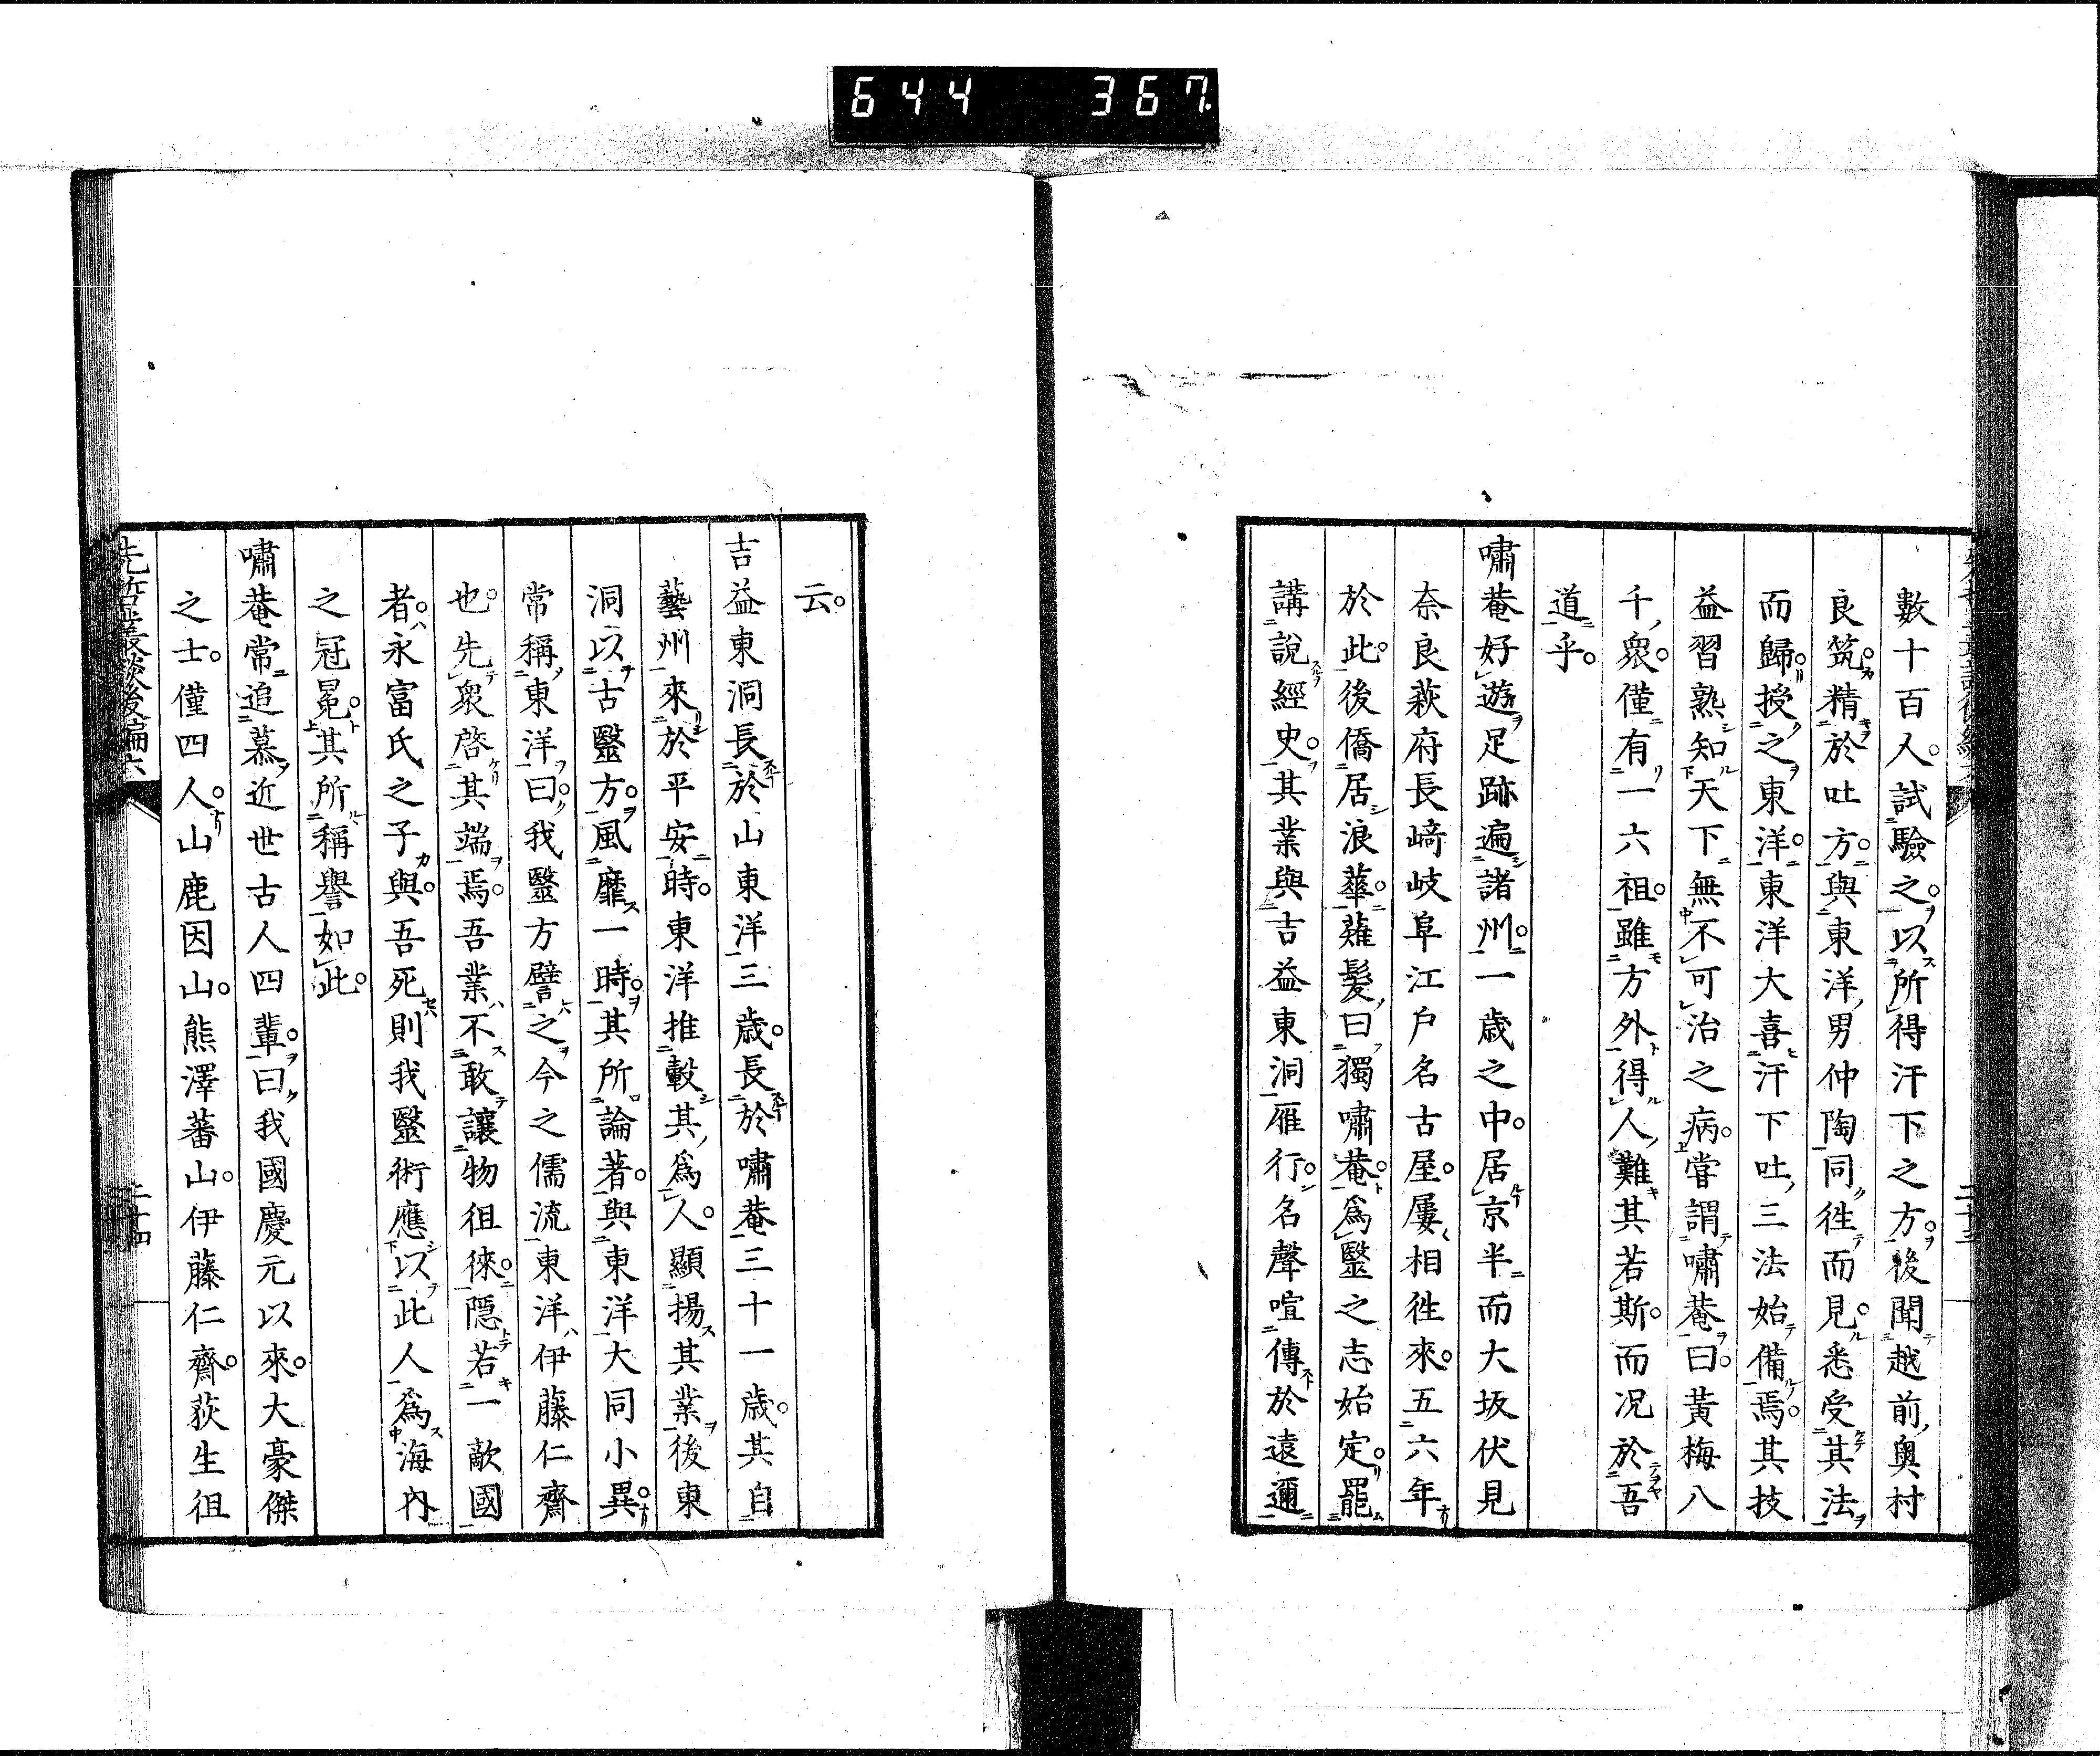 644 367
數十百人。試驗之。以所得汗下之方。後聞越前奧村
良筑。精於吐方。與東洋男仲陶同徃而見。悉受其法
而歸。授之東洋。東洋大喜。汗下吐三法始備焉。其技
益習熟。知天下無不可治之病。嘗謂嘯菴曰。黃梅八
千衆。僅有一六祖。雖方外得人難其若斯。而况於吾
道乎。
嘯菴好遊。足跡遍諸州。一歲之中。居京半而大坂伏見
奈良萩府長崎岐阜江戶名古屋。屢相徃來。五六年
於此。後僑居浪華。薙髮曰獨嘯菴。爲醫之志始定。罷
講說經史。其業與吉益東洞雁行。名聲喧傳於遠邇
云。
吉益東洞長於山東洋三歲。長於嘯菴三十一歲。其自
藝州來於平安時。東洋推轂其爲人。顯揚其業。後東
洞以古醫方。風靡一時。其所論著。與東洋大同小異。
常稱東洋曰。我醫方譬之今之儒流。東洋伊藤仁齋
也。先衆啓其端焉。吾業不敢讓物徂徠。隱若一敵國
者。永富氏之子與。吾死則我醫術應以此人爲海內
之冠冕。其所稱譽如此。
嘯菴常追慕近世古人四輩。曰我國慶元以來。大豪傑
之士。僅四人。山鹿因山。熊澤蕃山。伊藤仁齋。荻生徂
先哲叢談後編六
二十四